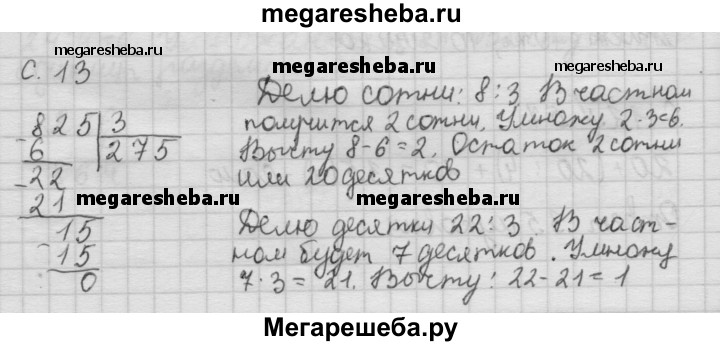 megaresheba.ru
megaresheba.ru
с. 13
megaresheba.ru
megaresheba.ru
Делю сотни: 8:3 В частном
825 | 3
получится 2 сотни. Умножу 2·3=6.
6
275
Вычту 8-6=2. Остаток 2 сотни
22
или 20 десятков
21
megaresheba.ru
megaresheba.ru
15
Делю десятки 22:3 В част-
15
ном будет 7 десятков. Умножу
0
7·3=21. Вычту: 22-21=1
Мегарешеба.ру